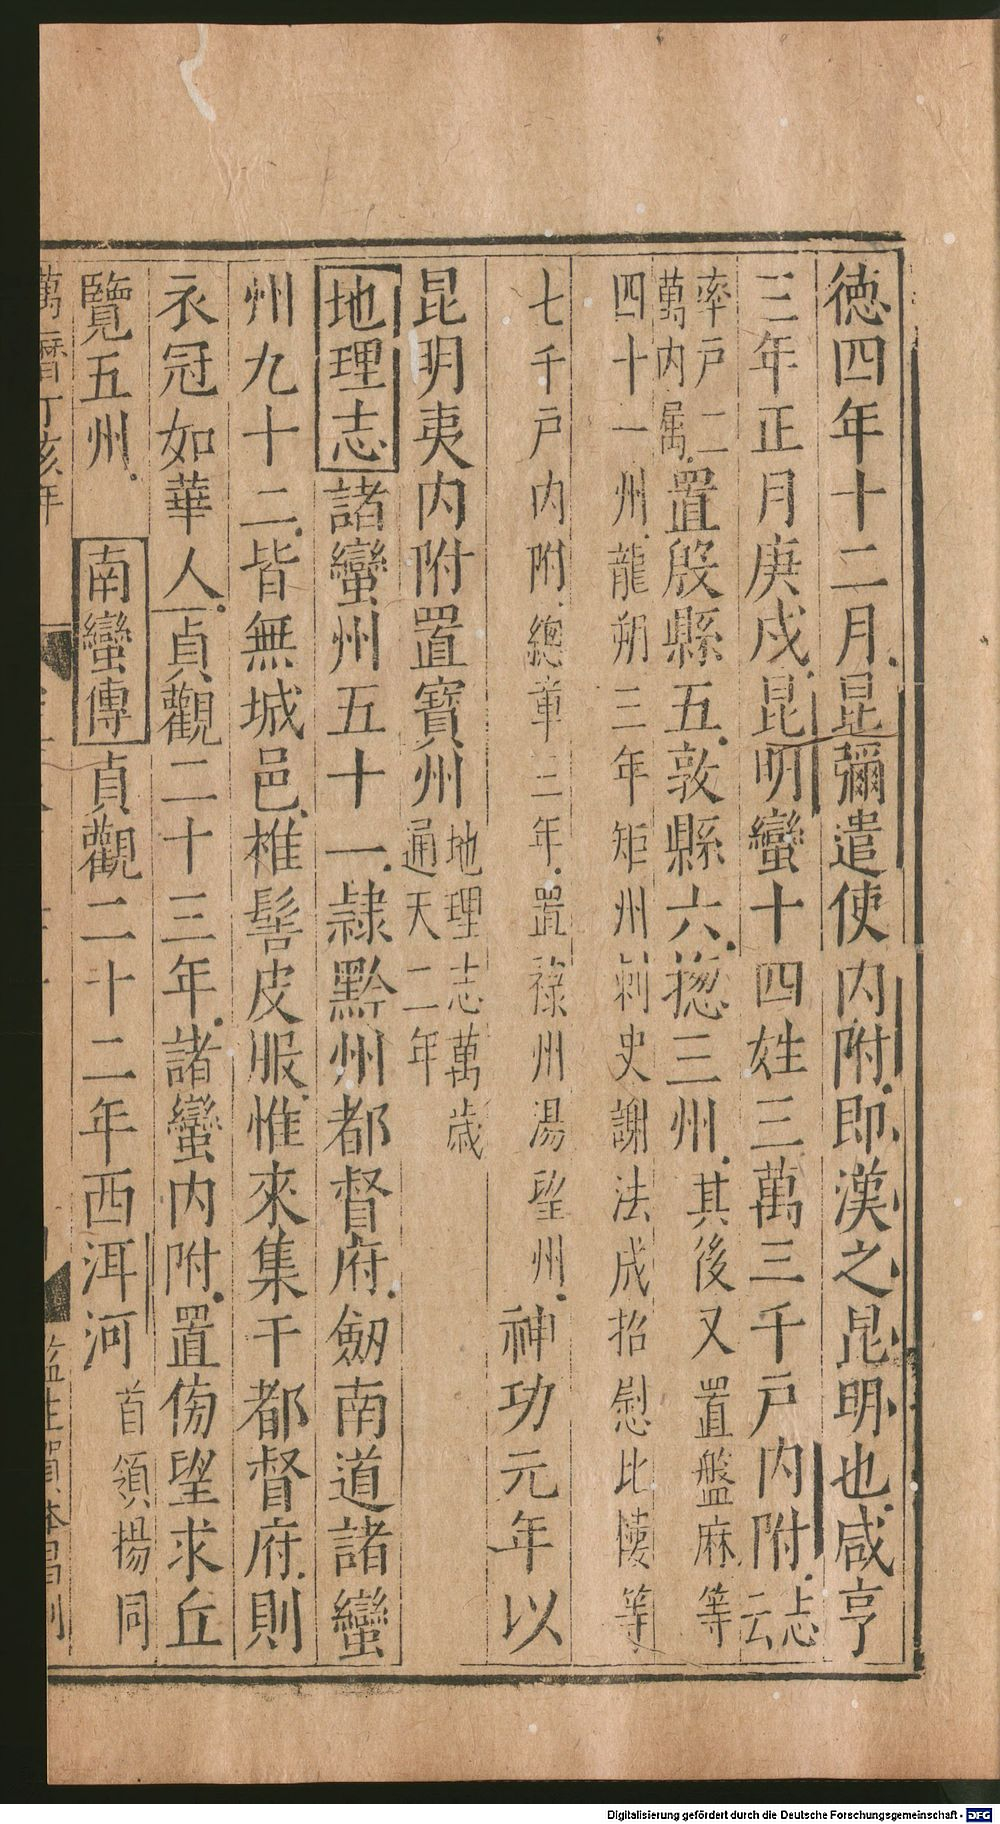 德四年十二月昆彌遣使内附即漢之昆明也咸亨
三年正月庚戌昆明蠻十四姓三萬三千戸内附志云
率戸二萬内属置殷縣五敦縣六揔三州其後又置盤麻等
四十一州龍朔三年矩州刺史謝法成招慰比楼等
七千戸内附總章三年置祿州湯望州神功元年以
昆明夷内附置寶州地理志萬歳通天二年
地理志諸蠻州五十一隷黔州都督府劒南道諸蠻
州九十二皆無城邑椎髻皮服惟來集于都督府則
衣冠如華人貞觀二十三年諸蠻内附置傍望求丘
覽五州南蠻傳貞觀二十二年西洱河首領揚同
萬曆丁亥年
監生
刊
Digitalisierung gefördert durch die Deutsche Forschungsgemeinschaft - DFG